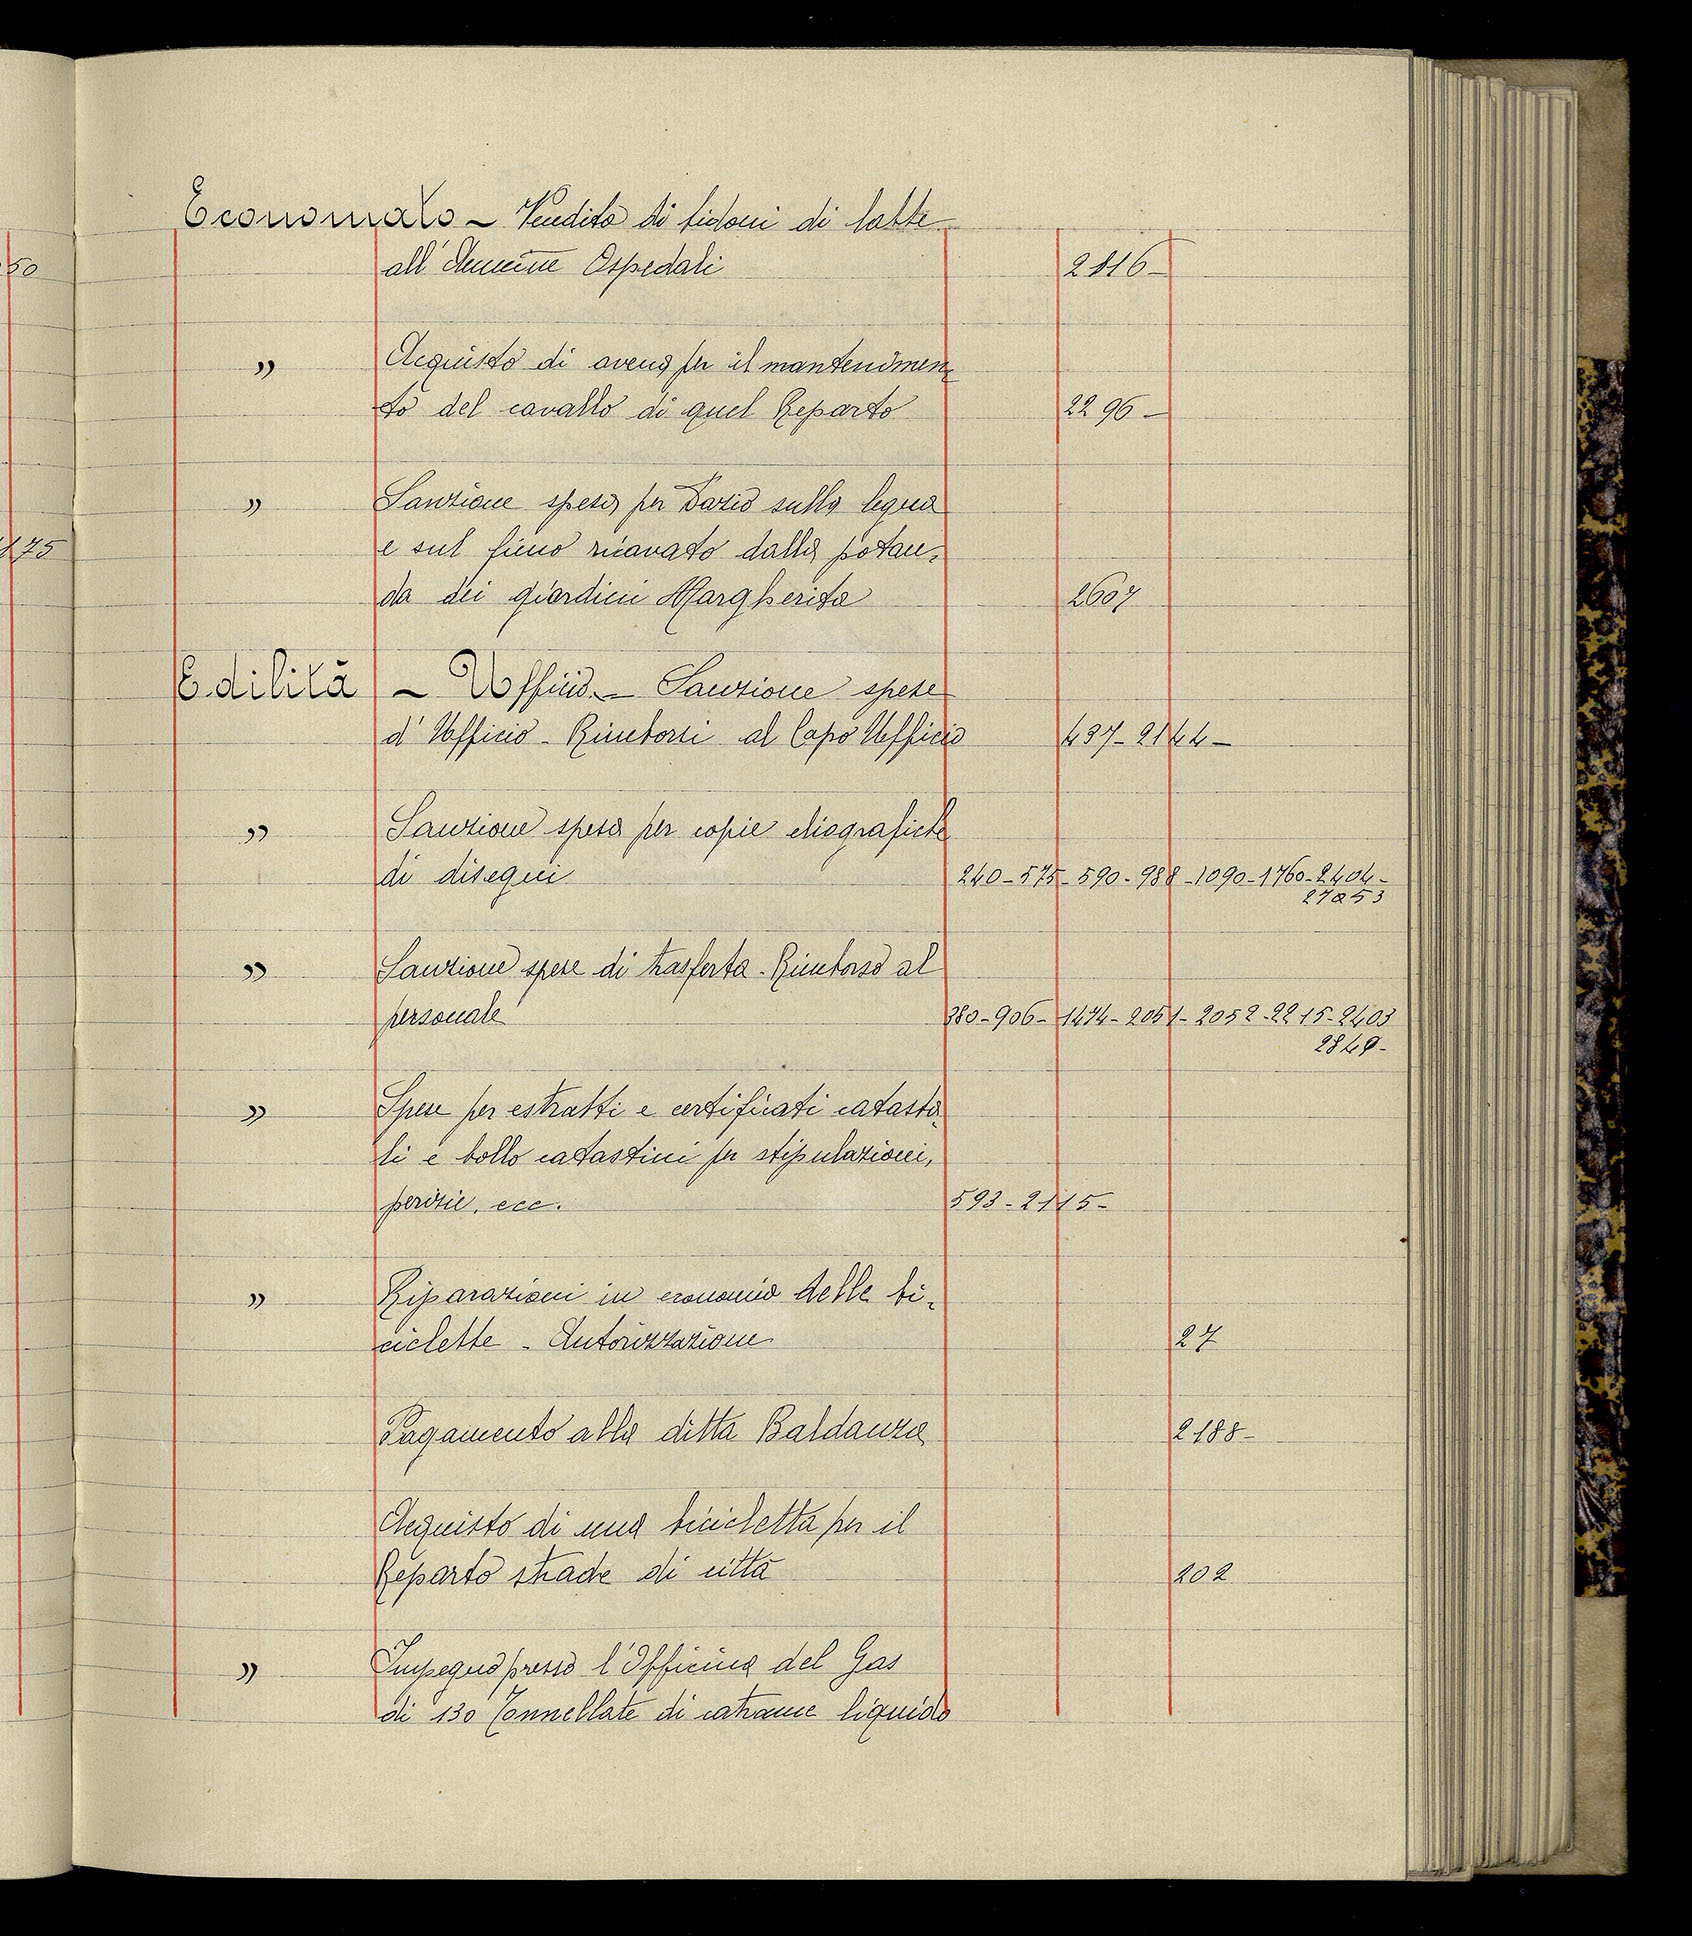 50
175
Economato - Vendita di bidoni di latte
all'Ammne Ospedali 2816-
" Acquisto di avena per il mantenimen-
to del cavallo di quel Reparto 2296-
" Sanzione spesa per Dazio sulla legna
e sul fieno ricavato dalla potan-
da dei giardini Margherita 2607
Edilità - Ufficio - Sanzione spese
d'Ufficio - Rimborsi al Capo Ufficio 437-2144-
" Sanzione spesa per copie eliografiche
di disegni 240-575-590-988-1090-1760-2404-
" Sanzione spese di trasferta - Rimborso al
personale 380-906-1474-2051-2052-2215-2403
2849-
" Spese per estratti e certificati catasta-
li e bollo catastini per stipulazioni,
perizie, ecc. 593-2115-
" Riparazioni in economia delle bi-
ciclette - Autorizzazione 27
Pagamento alla ditta Baldanza 2188-
Acquisto di una bicicletta per il
Reparto strade di città 202
" Impegno presso l'Officina del Gas
di 130 Tonnellate di catrame liquido